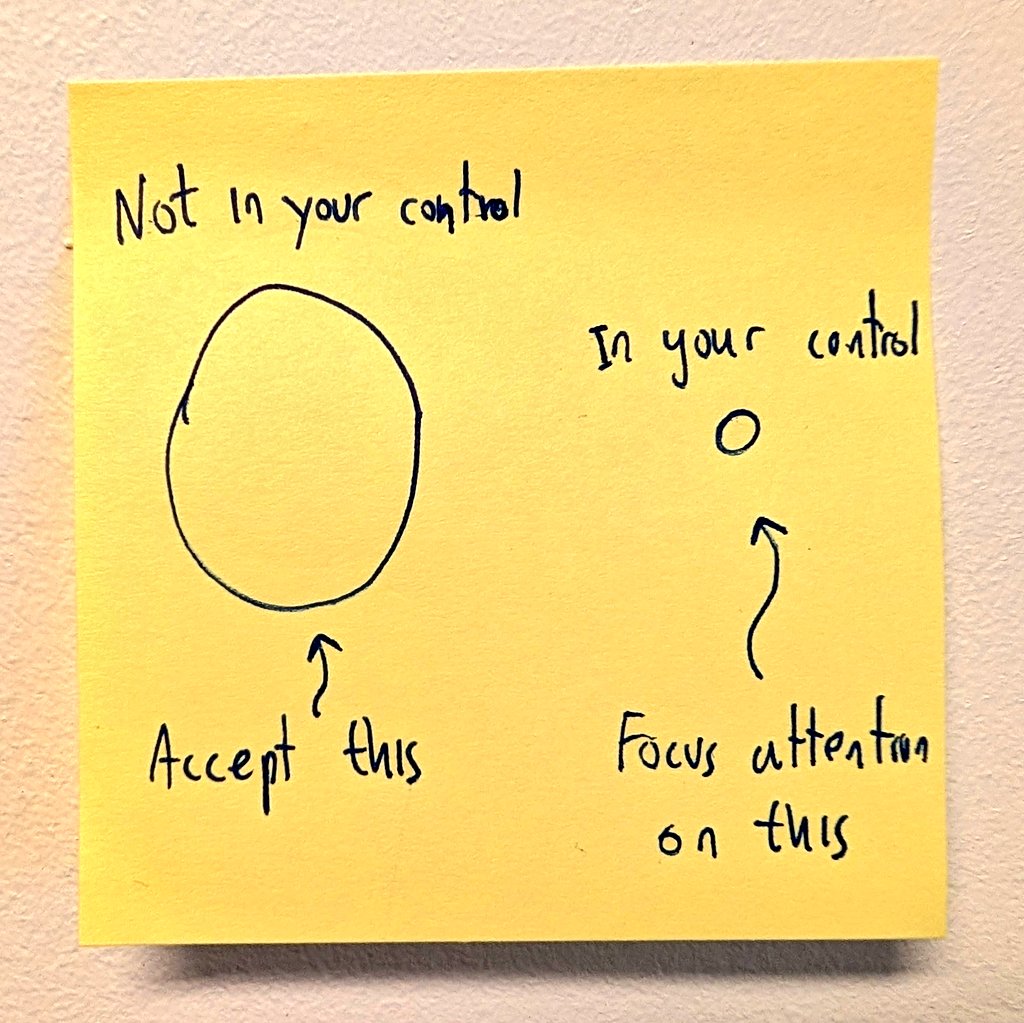 Not in your control
In your control
Accept this
Focus attention
on this